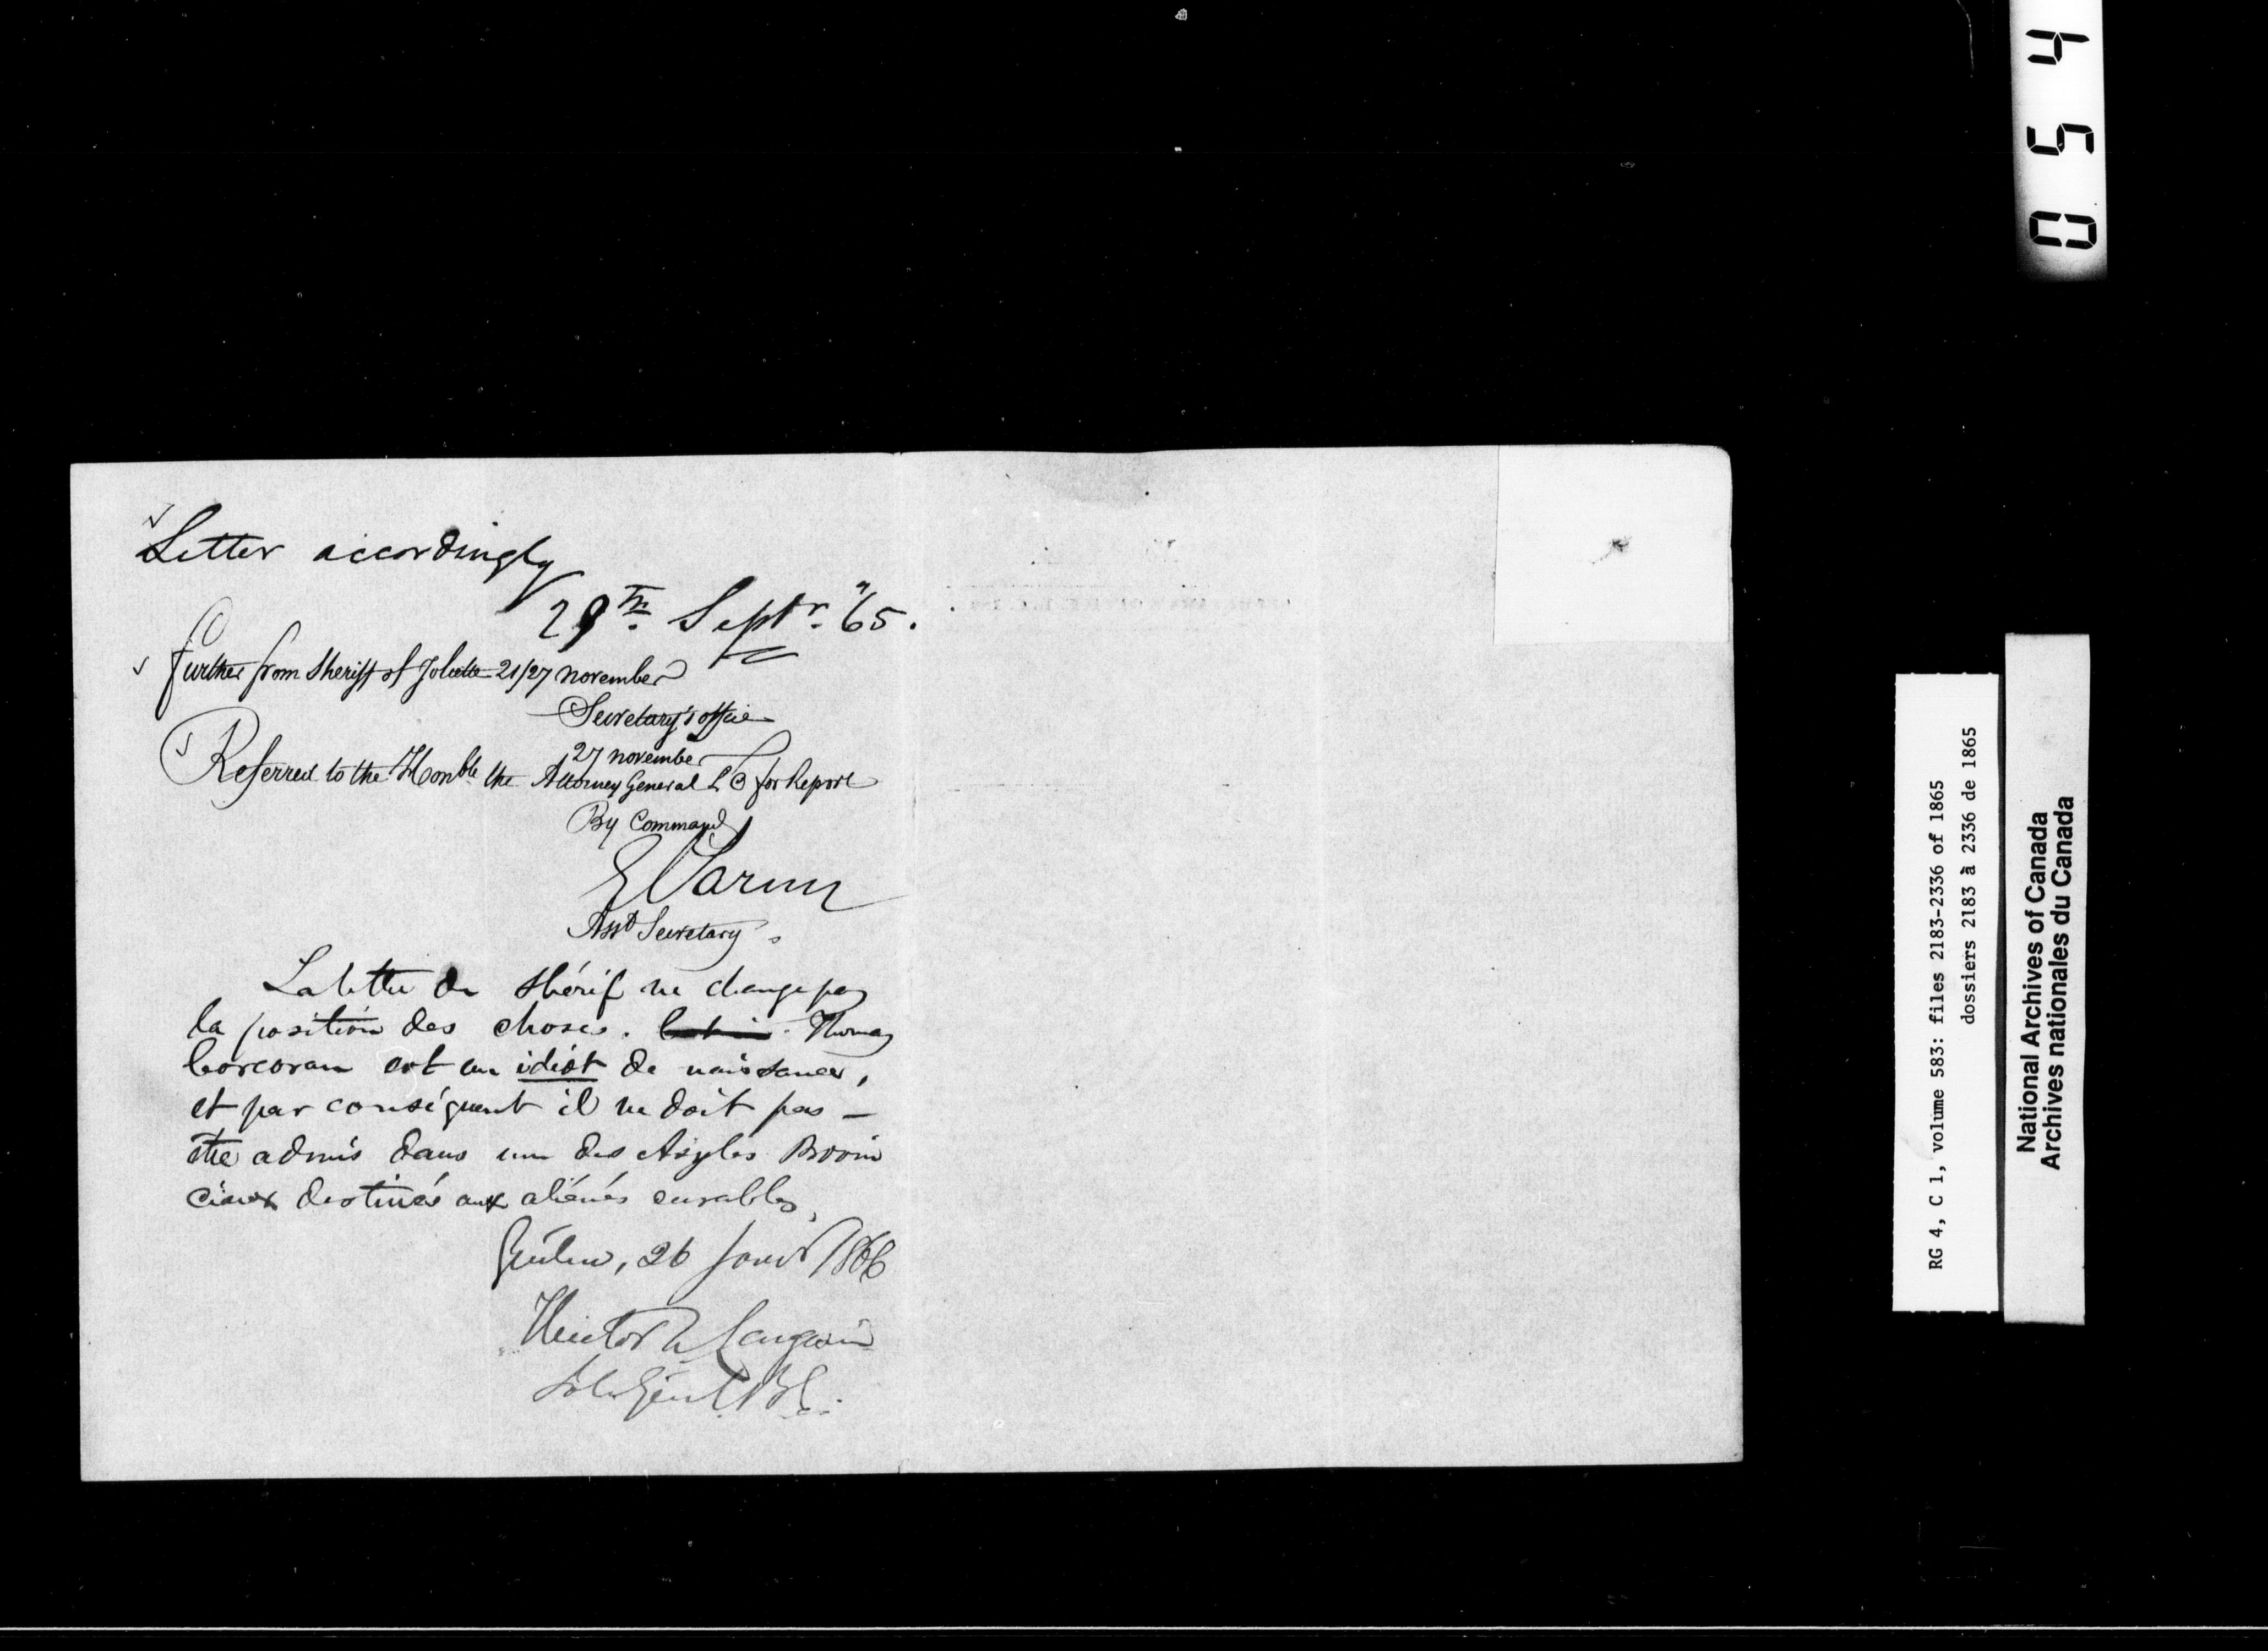 Letter accordingly
29th Septr "65.
Further from Sheriff of Joliette 21/27 November
Secretary's office
27 November
Referred to the Honble the Attorney General L C for Report
By Command
E Parent
Asst Secretary.
La lettre du Shérif ne change pas
la position des choses. Thomas
Corcoran est un idiot de naissance,
et par conséquent il ne doit pas –
être admis dans un des Asyles Provin
ciaux destinés aux aliénés curables,
Québec, 26 Janvr 1866
Hector L Langevin
Sol. Génl. B.C.
0 5 4
RG 4, C 1, volume 583: files 2183-2336 of 1865
dossiers 2183 à 2336 de 1865
National Archives of Canada
Archives nationales du Canada